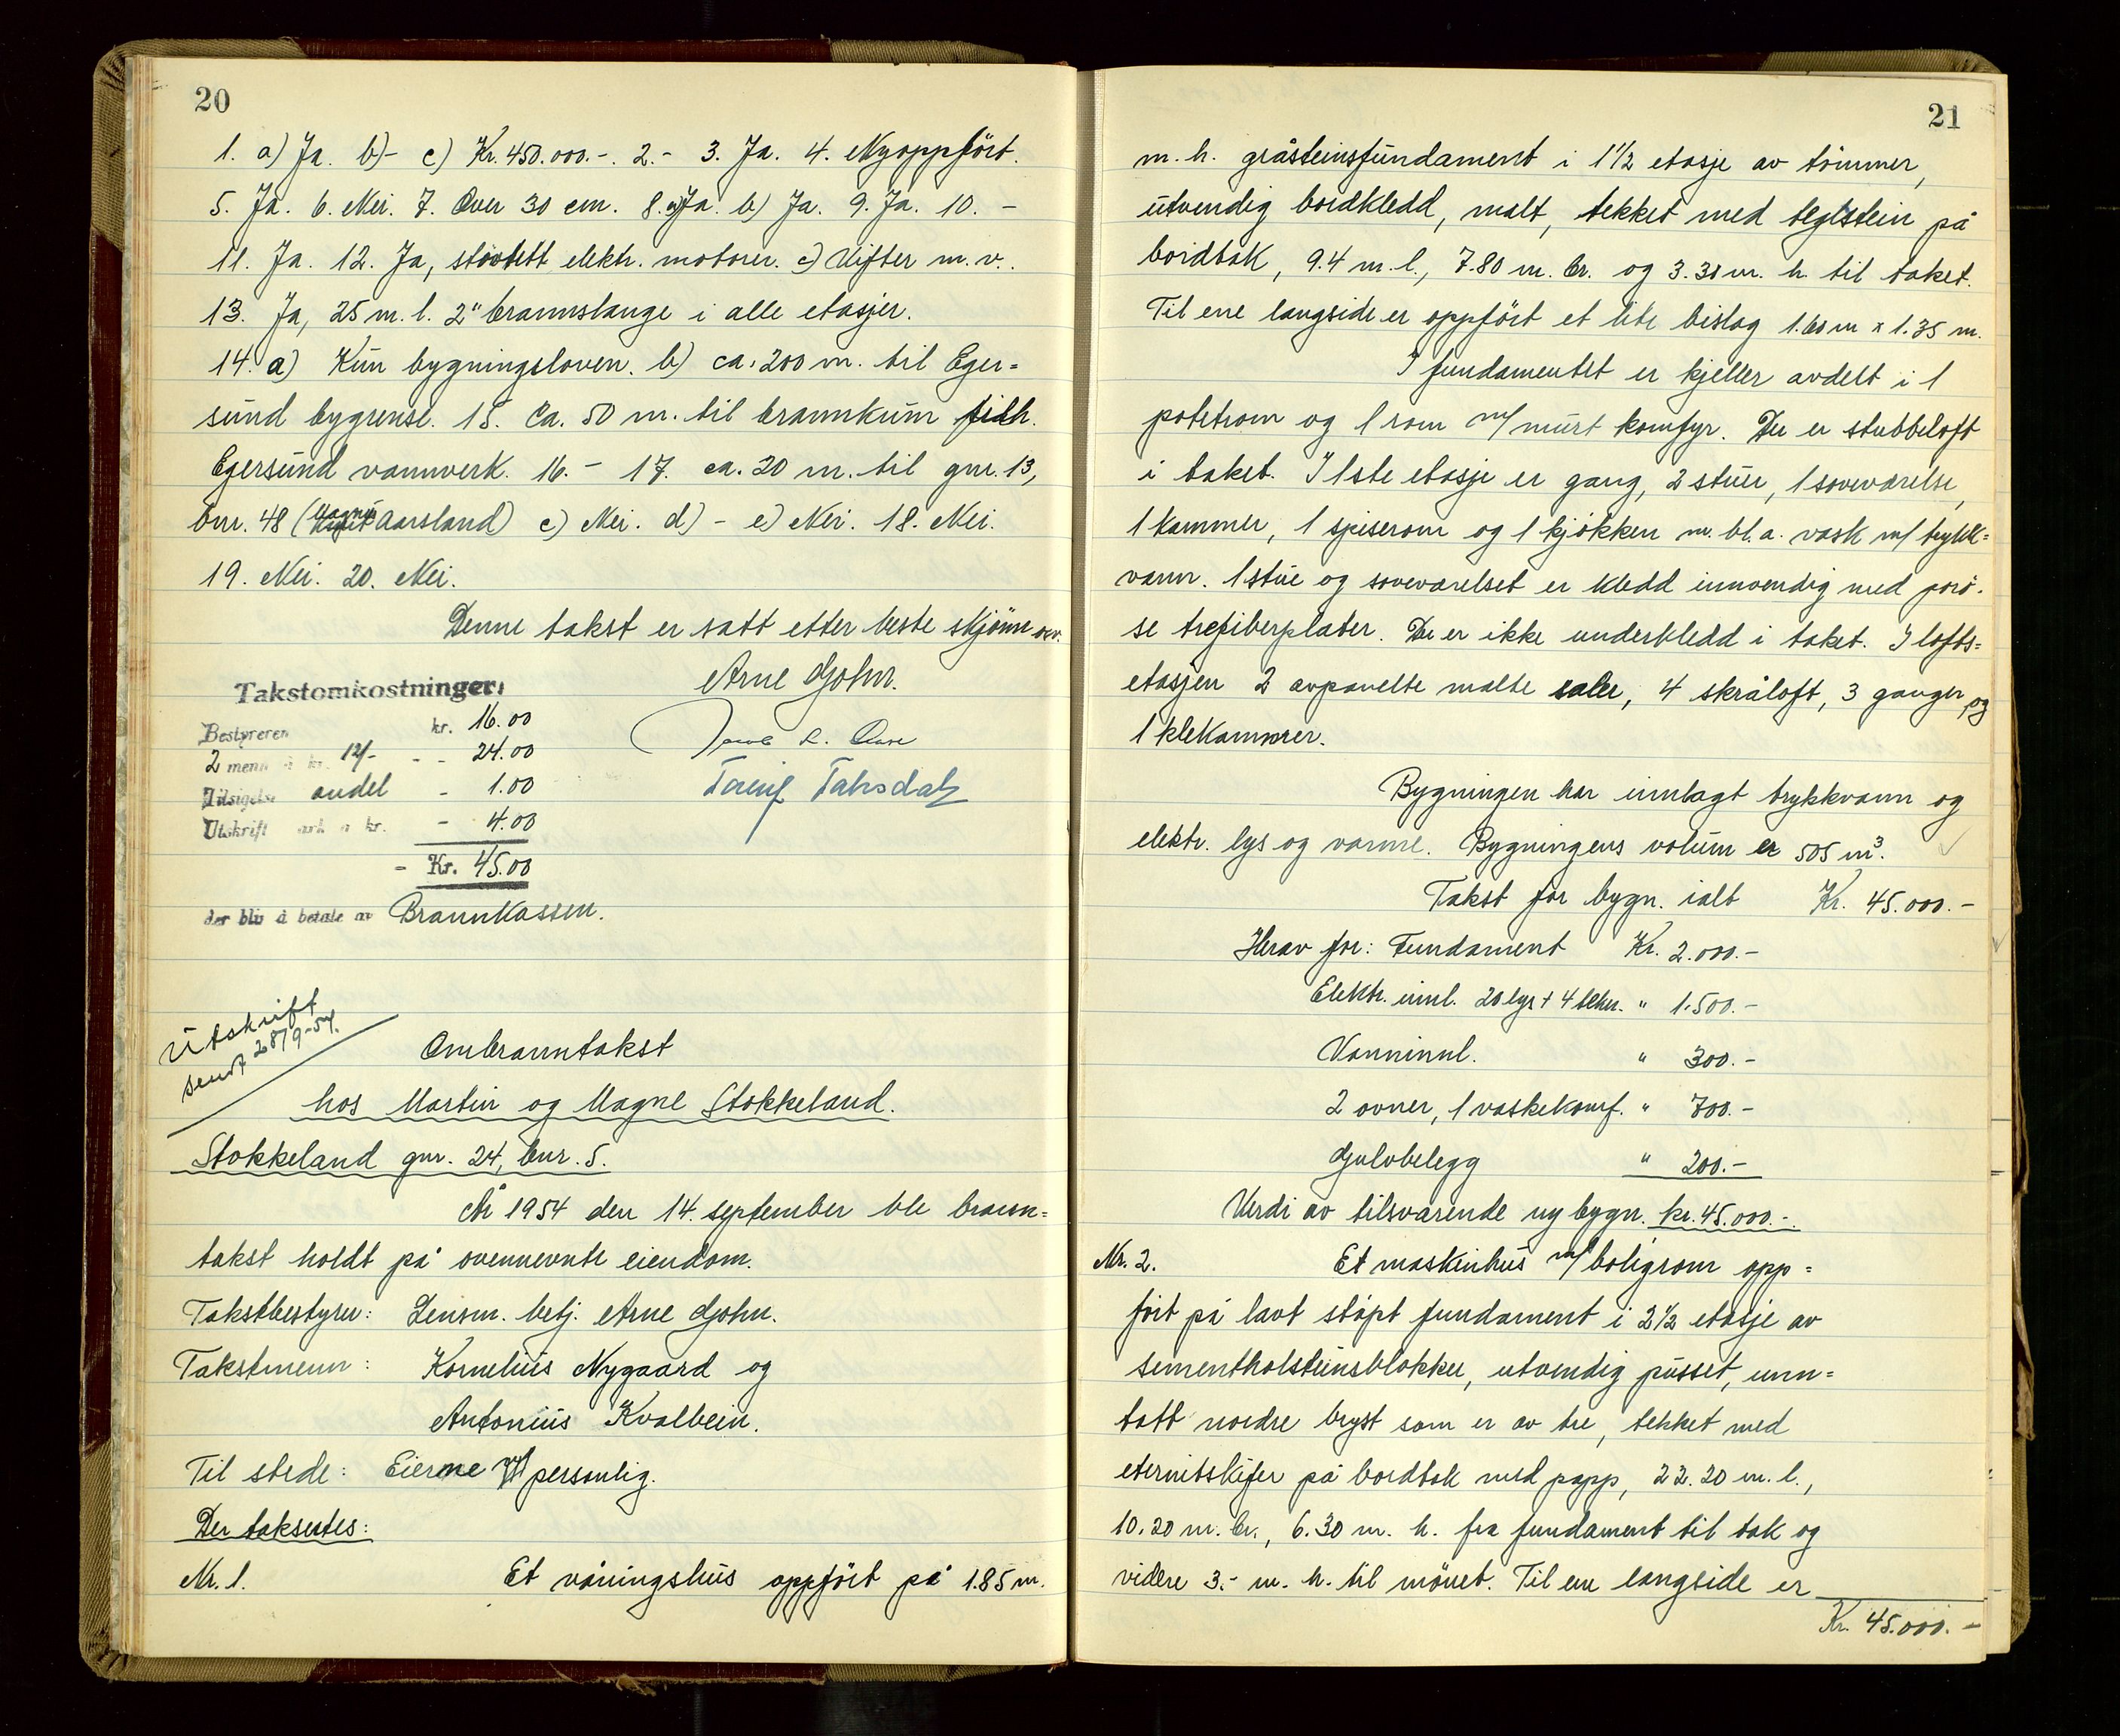 20
1. a) Ja. b)- c) Kr. 450.000.-. 2.- 3. Ja. 4. Nyoppfört.
5. Ja. 6. Nei. 7. Over 30 cm. 8. a) Ja. b) Ja. 9. Ja. 10. -
11. Ja. 12. Ja, støvtett elektr. motorer. c) Vifter m.v..
13. Ja, 25 m. l. 2" brannslange i alle etasjer.
14. a) Kun bygningsloven. b) ca. 200 m. til Eger=
sund bygrense. 15. Ca. 50 m. til brannkum tidh.
Egersund vannverk. 16. - 17. ca. 20 m. til gnr. 13,
bnr. 48 (Magnus Aarsland) c) Nei. d) - e) Nei. 18. Nei.
19. Nei. 20. Nei.
Denne takst er satt etter beste skjönn osv.
Arne Gjohn.
Takstomkostninger:
Bestyreren kr. 16.00
2 menn à kr. 12/- - - 24.00
Tilsigelse andel - 1.00
Utskrift ark a kr. - 4.00
- Kr. 45.00
Torleif Tarsdal
der bliv å betale av Brannkassen.
Utskrift
sendt 28/9-54.
Ombranntakst
hos Martin og Magne Stokkeland.
Stokkeland gnr. 24, bnr. 5.
År 1954 den 14. september ble brann=
takst holdt på ovennevnte eiendom.
Takstbestyrer: Lensm. betj. Arne Gjohn.
Takstmenn: Kornelius Nygaard og
Antonius Kvalbein.
Til stede: Eierne personlig.
Der takseres:
Nr. 1. Et våningshus oppfört på 1.85 m.
21
m. h. gråsteinsfundament i 1 1/2 etasje av tömmer,
utvendig bordkledd, malt, tekket med teglstein på
bordtak, 9.4 m. l., 7.80 m. br. og 3.30 m. h. til taket.
Til ene langside er oppfört et lite bislag 1.60 m x 1.35 m.
I fundamentet er kjeller avdelt i 1
potetrom og 1 rom m/ murt komfyr. Der er stubbeloft
i taket. I 1ste etasje er gang, 2 stuer, 1 soveværelse,
1 kammer, 1 spiserom og 1 kjökken m. bl. a. vask m/ trykk=
vann. 1 stue og soveværelset er kledd innvendig med porö-
se trefiberplater. Der er ikke underkledd i taket. I lofts=
etasjen 2 avpanelte malte saler, 4 skråloft, 3 ganger og
1 klekammer.
Bygningen har innlagt trykkvann og
elektr. lys og varme. Bygningens volum er 505 m³.
Takst for bygn. ialt Kr. 45.000.-
Herav for: Fundament Kr. 2.000.-
Elektr. innl. 20 lys + 4 tekn. " 1.500.-
Vanninnl. " 300.-
2 ovner, 1 vaskekomf. " 700.-
Gulvbelegg " 200.-
Verdi av tilsvarende ny bygn. kr. 45.000.-.
Nr. 2. Et maskinhus m/ boligrom opp=
fört på lavt støpt fundament i 2 1/2 etasje av
sementholsteinsblokker, utvendig pusset, unn=
tatt nordre bryst som er av tre, tekket med
eternitskifer på bordtak med papp, 22.20 m. l.,
10.20 m. br., 6.30 m. h. fra fundament til tak og
videre 3.- m. h. til mönet. Til ene langside er
Kr. 45.000.-